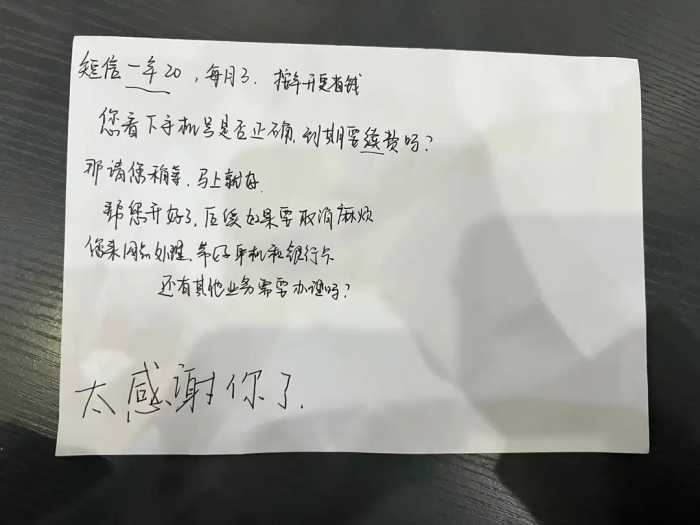 短信一年20，每月3.按年开更省钱
您看下手机号是否正确,到期要续费吗？
那请您稍等.马上就好.
帮您开好了,后续如果要取消麻烦
您来网点处理,带好手机和银行卡
还有其他业务需要办理吗？
太感谢你了.